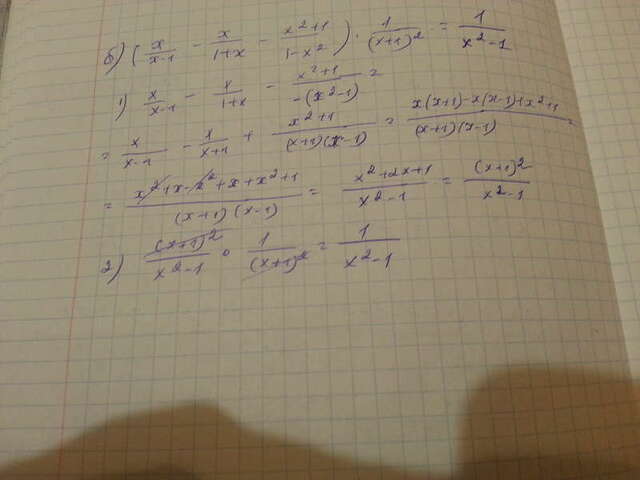 б) (x/(x-1) - x/(1+x) - (x²+1)/(1-x²)) · 1/(x+1)² = 1/(x²-1)
1) x/(x-1) - x/(1+x) - (x²+1)/(-(x²-1)) =
= x/(x-1) - x/(x+1) + (x²+1)/((x+1)(x-1)) = (x(x+1)-x(x-1)+x²+1)/((x+1)(x-1)) =
= (x²+x-x²+x+x²+1)/((x+1)(x-1)) = (x²+2x+1)/(x²-1) = (x+1)²/(x²-1)
2) (x+1)²/(x²-1) · 1/(x+1)² = 1/(x²-1)